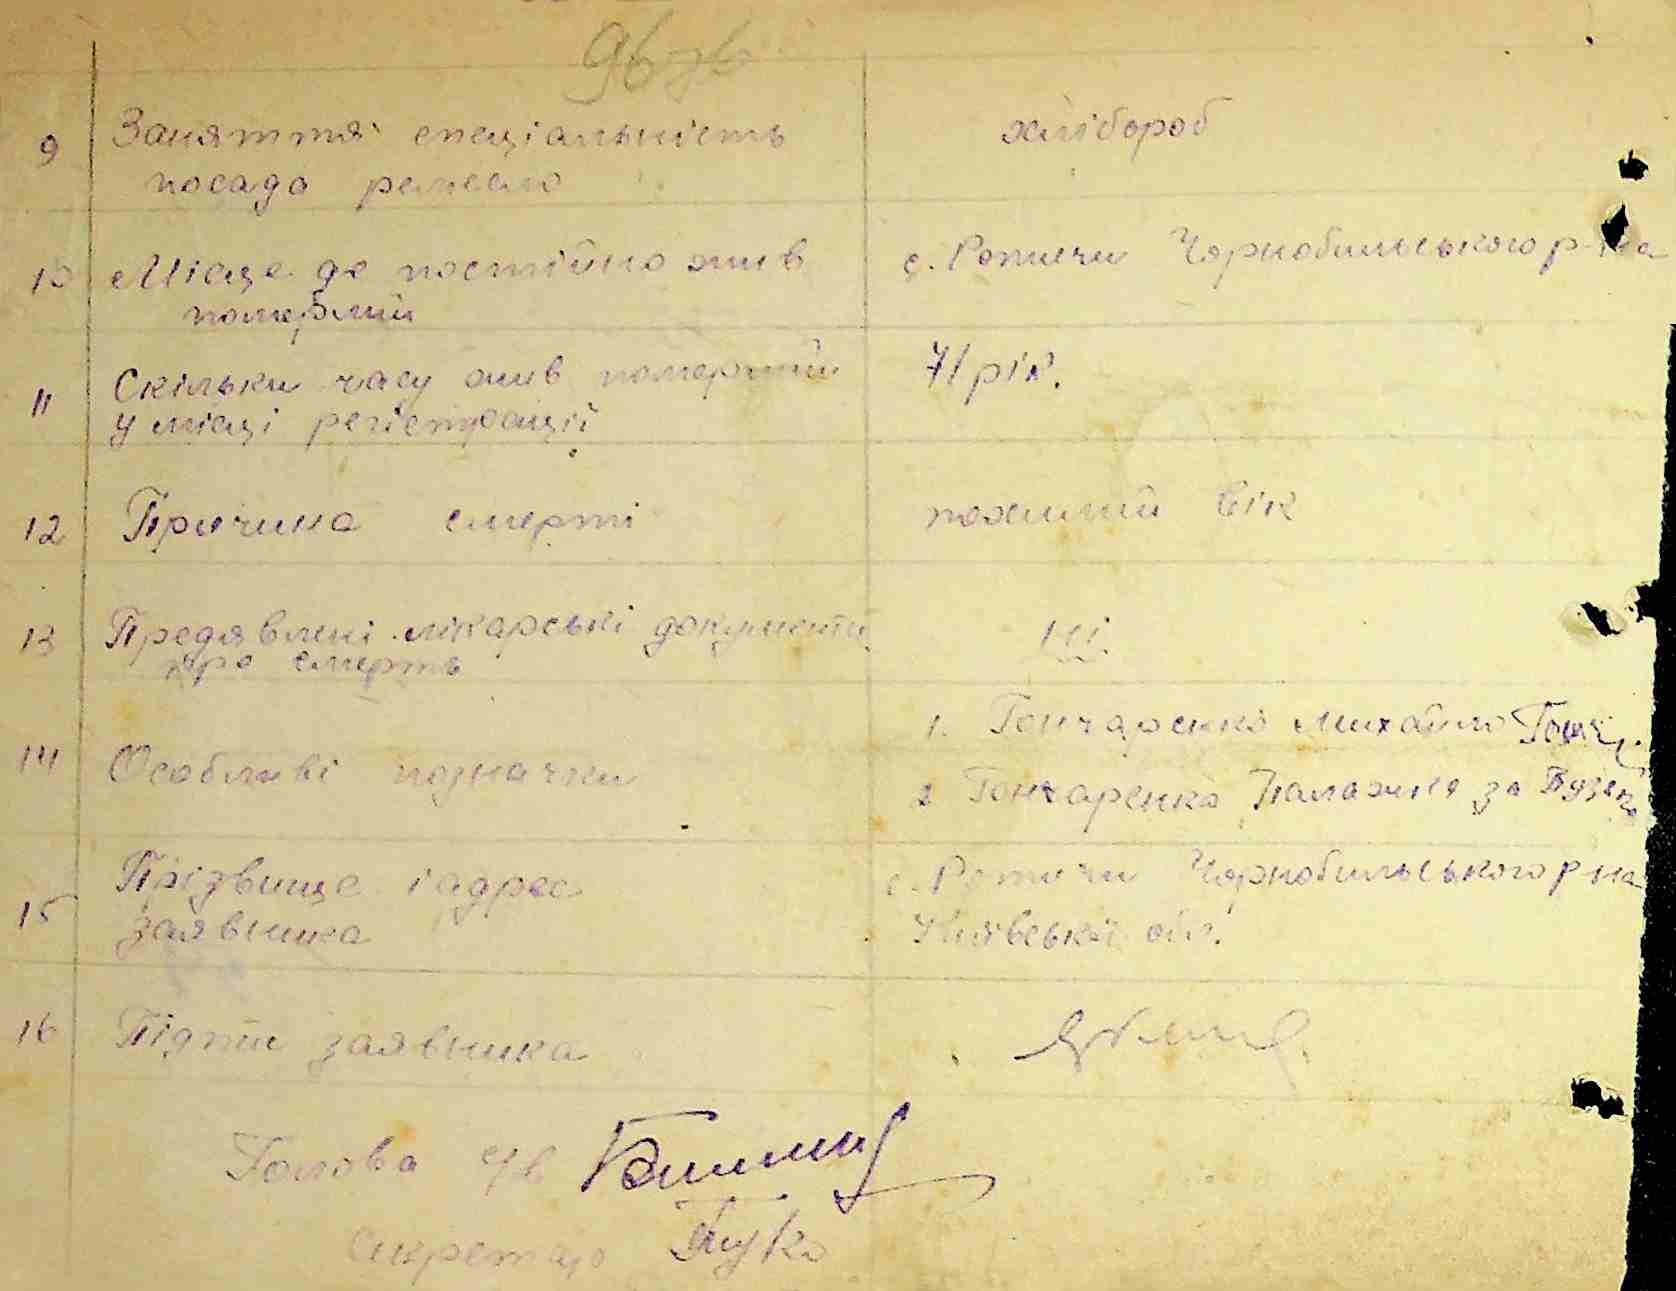 96
9 Заняття спеціальність хлібороб
посада ремесло
10 Місце де постійно жив с. Ротичи Чорнобильського р-на
померлий
11 Скільки часу жив померлий 71 рік.
у місці регістрації
12 Причина смерті похилий вік
13 Предявлені лікарські документи ні.
про смерть
1. Гончаренко Михайло
14 Особливі позначки
2 Гончаренко Палажка за
15 Прізвище і адрес с. Ротичи Чорнобильського р на
заявника Київської обл.
16 Підпис заявника
Голова с/в
Секретар